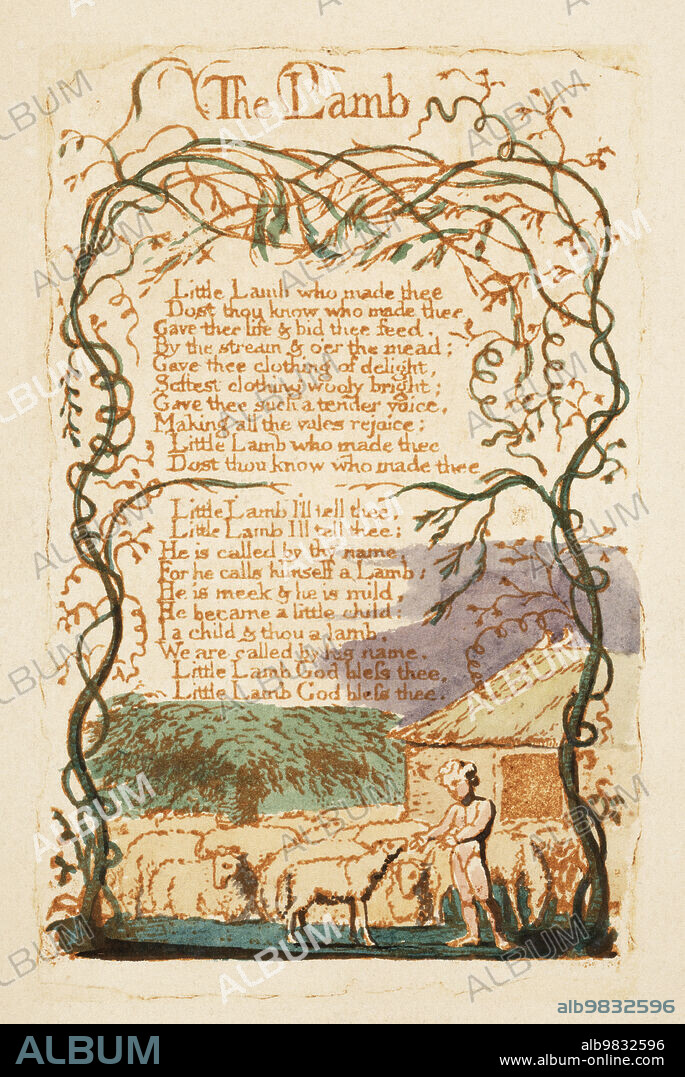 The Lamb
Little Lamb who made thee
Dost thou know who made thee
Gave thee life & bid thee feed.
By the stream & o'er the mead;
Gave thee clothing of delight,
Softest clothing wooly bright;
Gave thee such a tender voice,
Making all the vales rejoice:
Little Lamb who made thee
Dost thou know who made thee
Little Lamb I'll tell thee,
Little Lamb I'll tell thee;
He is called by thy name,
For he calls himself a Lamb:
He is meek & he is mild,
He became a little child:
I a child & thou a lamb,
We are called by his name.
Little Lamb God bleſs thee,
Little Lamb God bleſs thee.
alb9832596
ALBUM
alb9832596
www.album-online.com